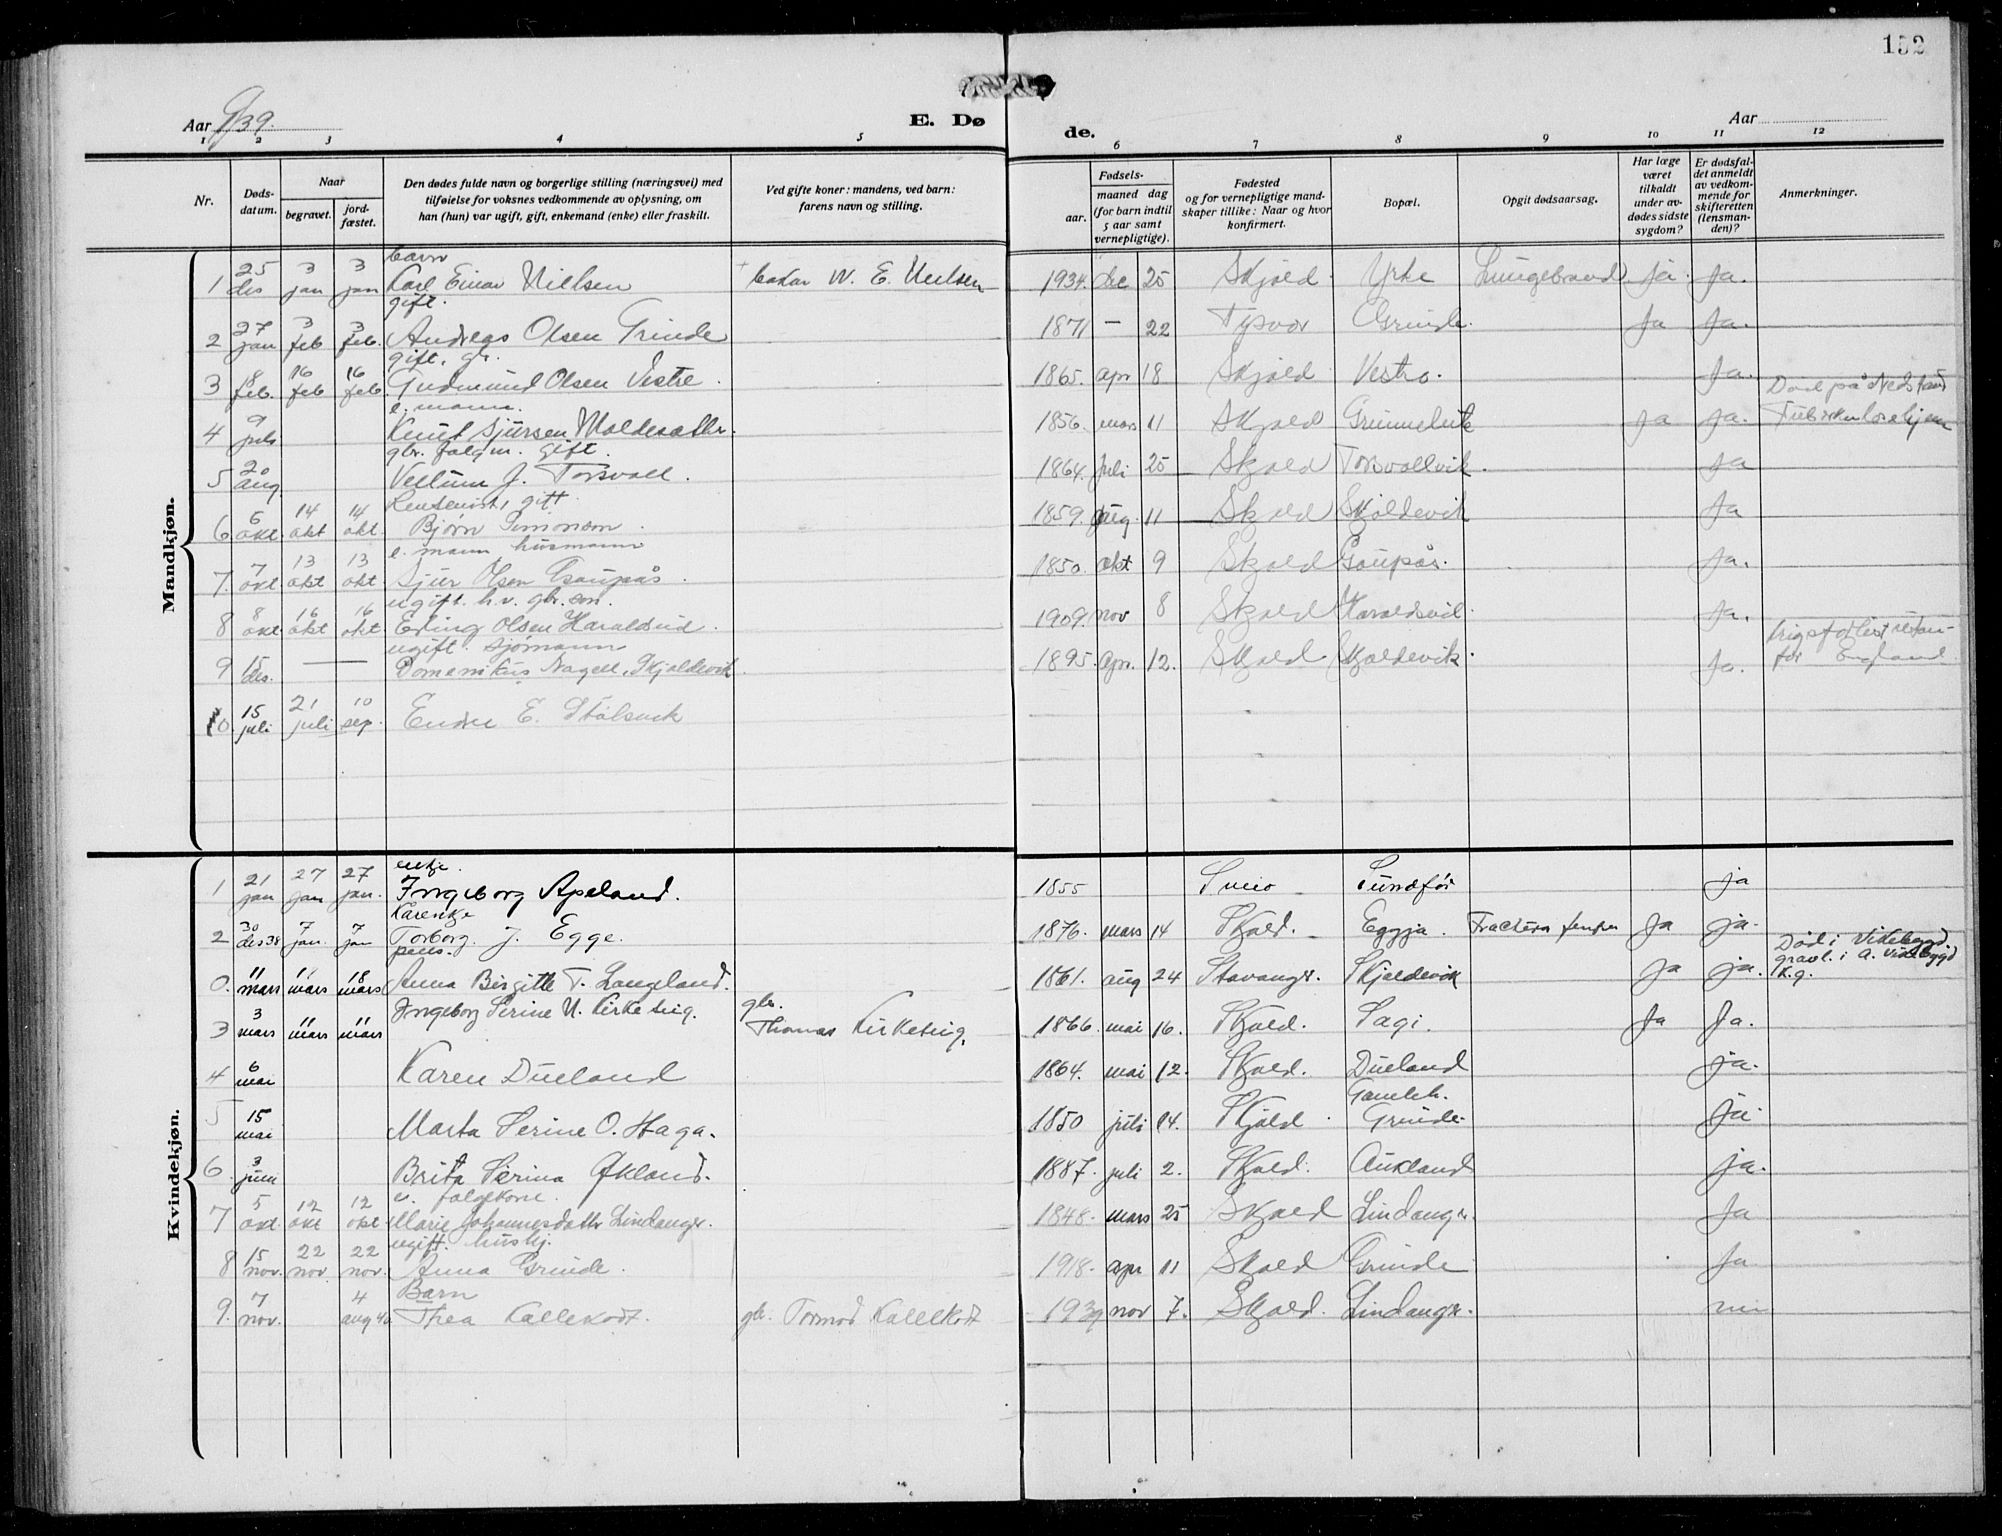 152
Aar 1939.
E. Dø
de.
Aar
1 2 3 4 5 6 7 8 9 10 11 12
Nr.
Døds-datum.
Naar
begravet.
jord-fæstet.
Den dødes fulde navn og borgerlige stilling (næringsvei) med
tilføielse for voksnes vedkommende av oplysning, om
han (hun) var ugift, gift, enkemand (enke) eller fraskilt.
Ved gifte koner: mandens, ved barn:
farens navn og stilling.
Fødsels-
aar.
maaned dag
(for barn indtil
5 aar samt
vernepligtige).
Fødested
og for vernepligtige mand-
skaper tillike: Naar og hvor
konfirmert.
Bopæl.
Opgit dødsaarsag.
Har læge
været
tilkaldt
under av-
dødes sidste
sygdom?
Er dødsfal-
det anmeldt
av vedkom-
mende for
skifteretten
(lensman-
den)?
Anmerkninger.
Mandkjøn.
barn
1 25 des 3 jan 3 jan Karl Einar Nielsen W. E. Nielsen 1934. des 25 Skjold Yrke Lungebrand Ja. Ja.
gift.
2 27 jan 3 feb 3 feb. Andreas Olsen Grinde 1871 — 22 Tysvær Grinde. Ja Ja.
gift, gbr.
3 8 feb. 16 feb 16 feb. Gudmund Olsen Vestre. 1865. apr 18 Skjold Vestre. Ja.
e. mann.
4 9 juli Knut Sjursen 1856. mars 11 Skjold Ja Ja. Død på Nedstrand
gbr. folgm. gift.
5 20 aug. J. Torsvoll. 1864. juli 25 Skjold Torsvollvik. Ja
gift.
6 6 okt. 14 okt 14 okt. Bjørn Simonsen. 1859. aug. 11 Skjold Skjoldevik Ja
e. mann husmann
7. 7 okt 13 okt 13 okt. Sjur Olsen Gaupås. 1850. okt 9 Skjold Gaupås. Ja.
ugift. h.v. gbr. søn.
8 8 okt. 16 okt 16 okt. Erling Olsen Haraldseid. 1909. nov 8 Skjold Ja.
ugift. sjømann
9 15 des. — — Domenikus Nagell, Skjoldevik. 1895. apr. 12. Skjold Skjoldevik. Ja. krigsforlist utenfor England
10 15 juli 21 juli 10 sep. Endre E. Stølsvik
Kvindekjøn.
enkje.
1 21 jan 27 jan 27 jan. Ingeborg Apeland. 1855 Sveio Sundfør ja
Kårenkje
2 30 des 38 7 jan. 7 jan Torborg J. Egge. 1876. mars 14 Skjold. Eggja. Ja ja.
pens.
0. 11 mars 11 mars 18 mars Anna Birgitte T. Langeland. 1861. aug 24 Stavanger. Skjoldevik Ja ja. Død i Vikebygd. gravl. i A. Vikebygd K.g.
3 3 mars 11 mars 11 mars Ingeborg Serine N. Kirketeig. gbr. Thomas Kirketeig. 1866. mai 16. Skjold. Sagi. Ja Ja.
4 6 mai Karen Dueland 1864. mai 12. Skjold. Dueland ja.
5 15 mai Marta Serine O. Haga. 1850 juli 14. Skjold. Gamleh. Grinde. ja.
6 3 juni Brita Serina Økland. 1887. juli 2. Skjold. Aukland ja.
e. folgekone.
7 5 okt. 12 okt 12 okt Marie Johannesdatter Lindanger. 1848. mars 25 Skjold Lindanger. Ja
ugift. hushj.
8 15 nov. 22 nov 22 nov. Anna Grinde. 1918. apr 11 Skjold Grinde Ja
Barn
9. 7 nov. 4 aug 40 Thea Kallekodt. gbr. Tormod Kallekodt 1939 nov 7. Skjold. Lindanger. nei